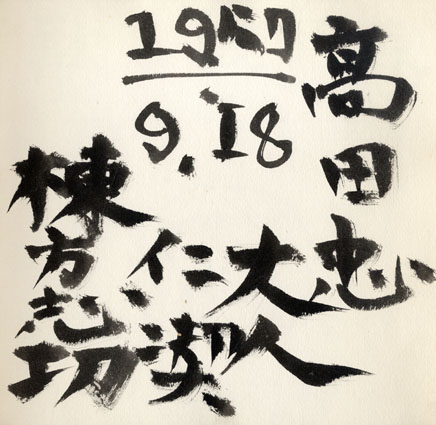 1957
9.18
高田忠
大人
仁
棟方志功